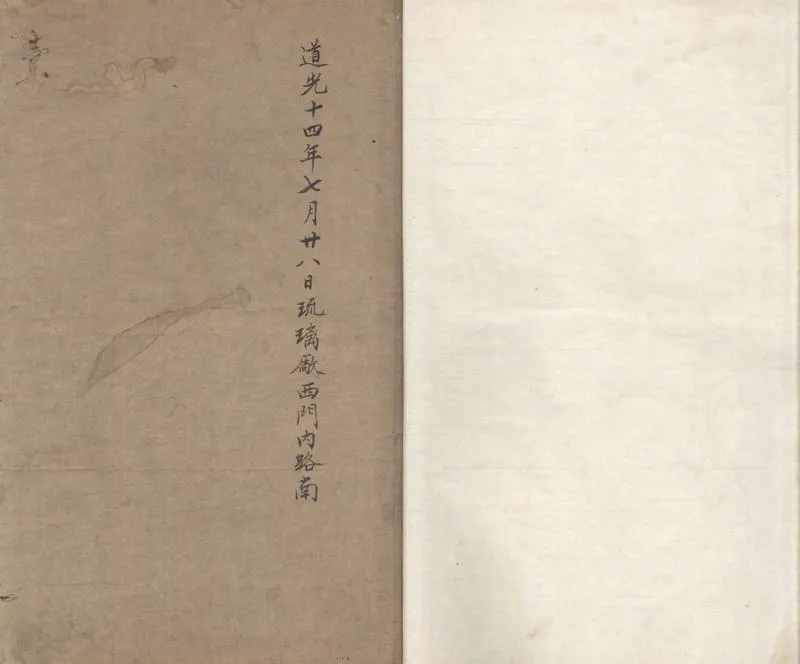 道光十四年七月廿八日琉璃厰西門内路南